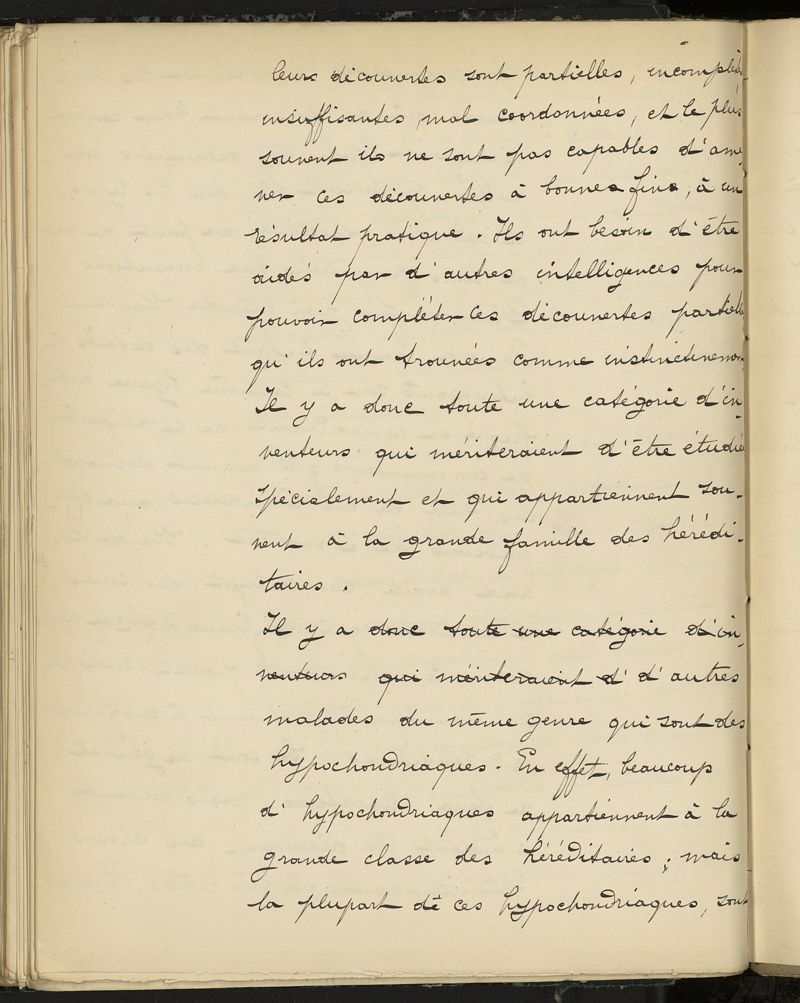 leurs découvertes sont partielles, incomplètes
insuffisantes, mal coordonnées, et le plus
souvent ils ne sont pas capables d'ame
ner ces découvertes à bonnes fins, à un
résultat pratique. Ils ont besoin d'être
aidés par d'autres intelligences pour
pouvoir compléter ces découvertes partielles
qu'ils ont trouvées comme instinctivement
Il y a donc toute une catégorie d'in-
venteurs qui mériteraient d'être étudiés
spécialement et qui appartiennent sou-
vent à la grande famille des hérédi-
taires.
Il y a donc toute une catégorie d'in-
venteurs qui mériteraient d' d'autres
malades du même genre qui sont des
hypochondriaques. En effet, beaucoup
d'hypochondriaques appartiennent à la
grande classe des héréditaires ; mais
la plupart de ces hypochondriaques, sont